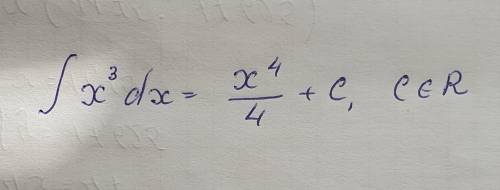 ∫ x³ dx = x⁴/4 + C, C ∈ R